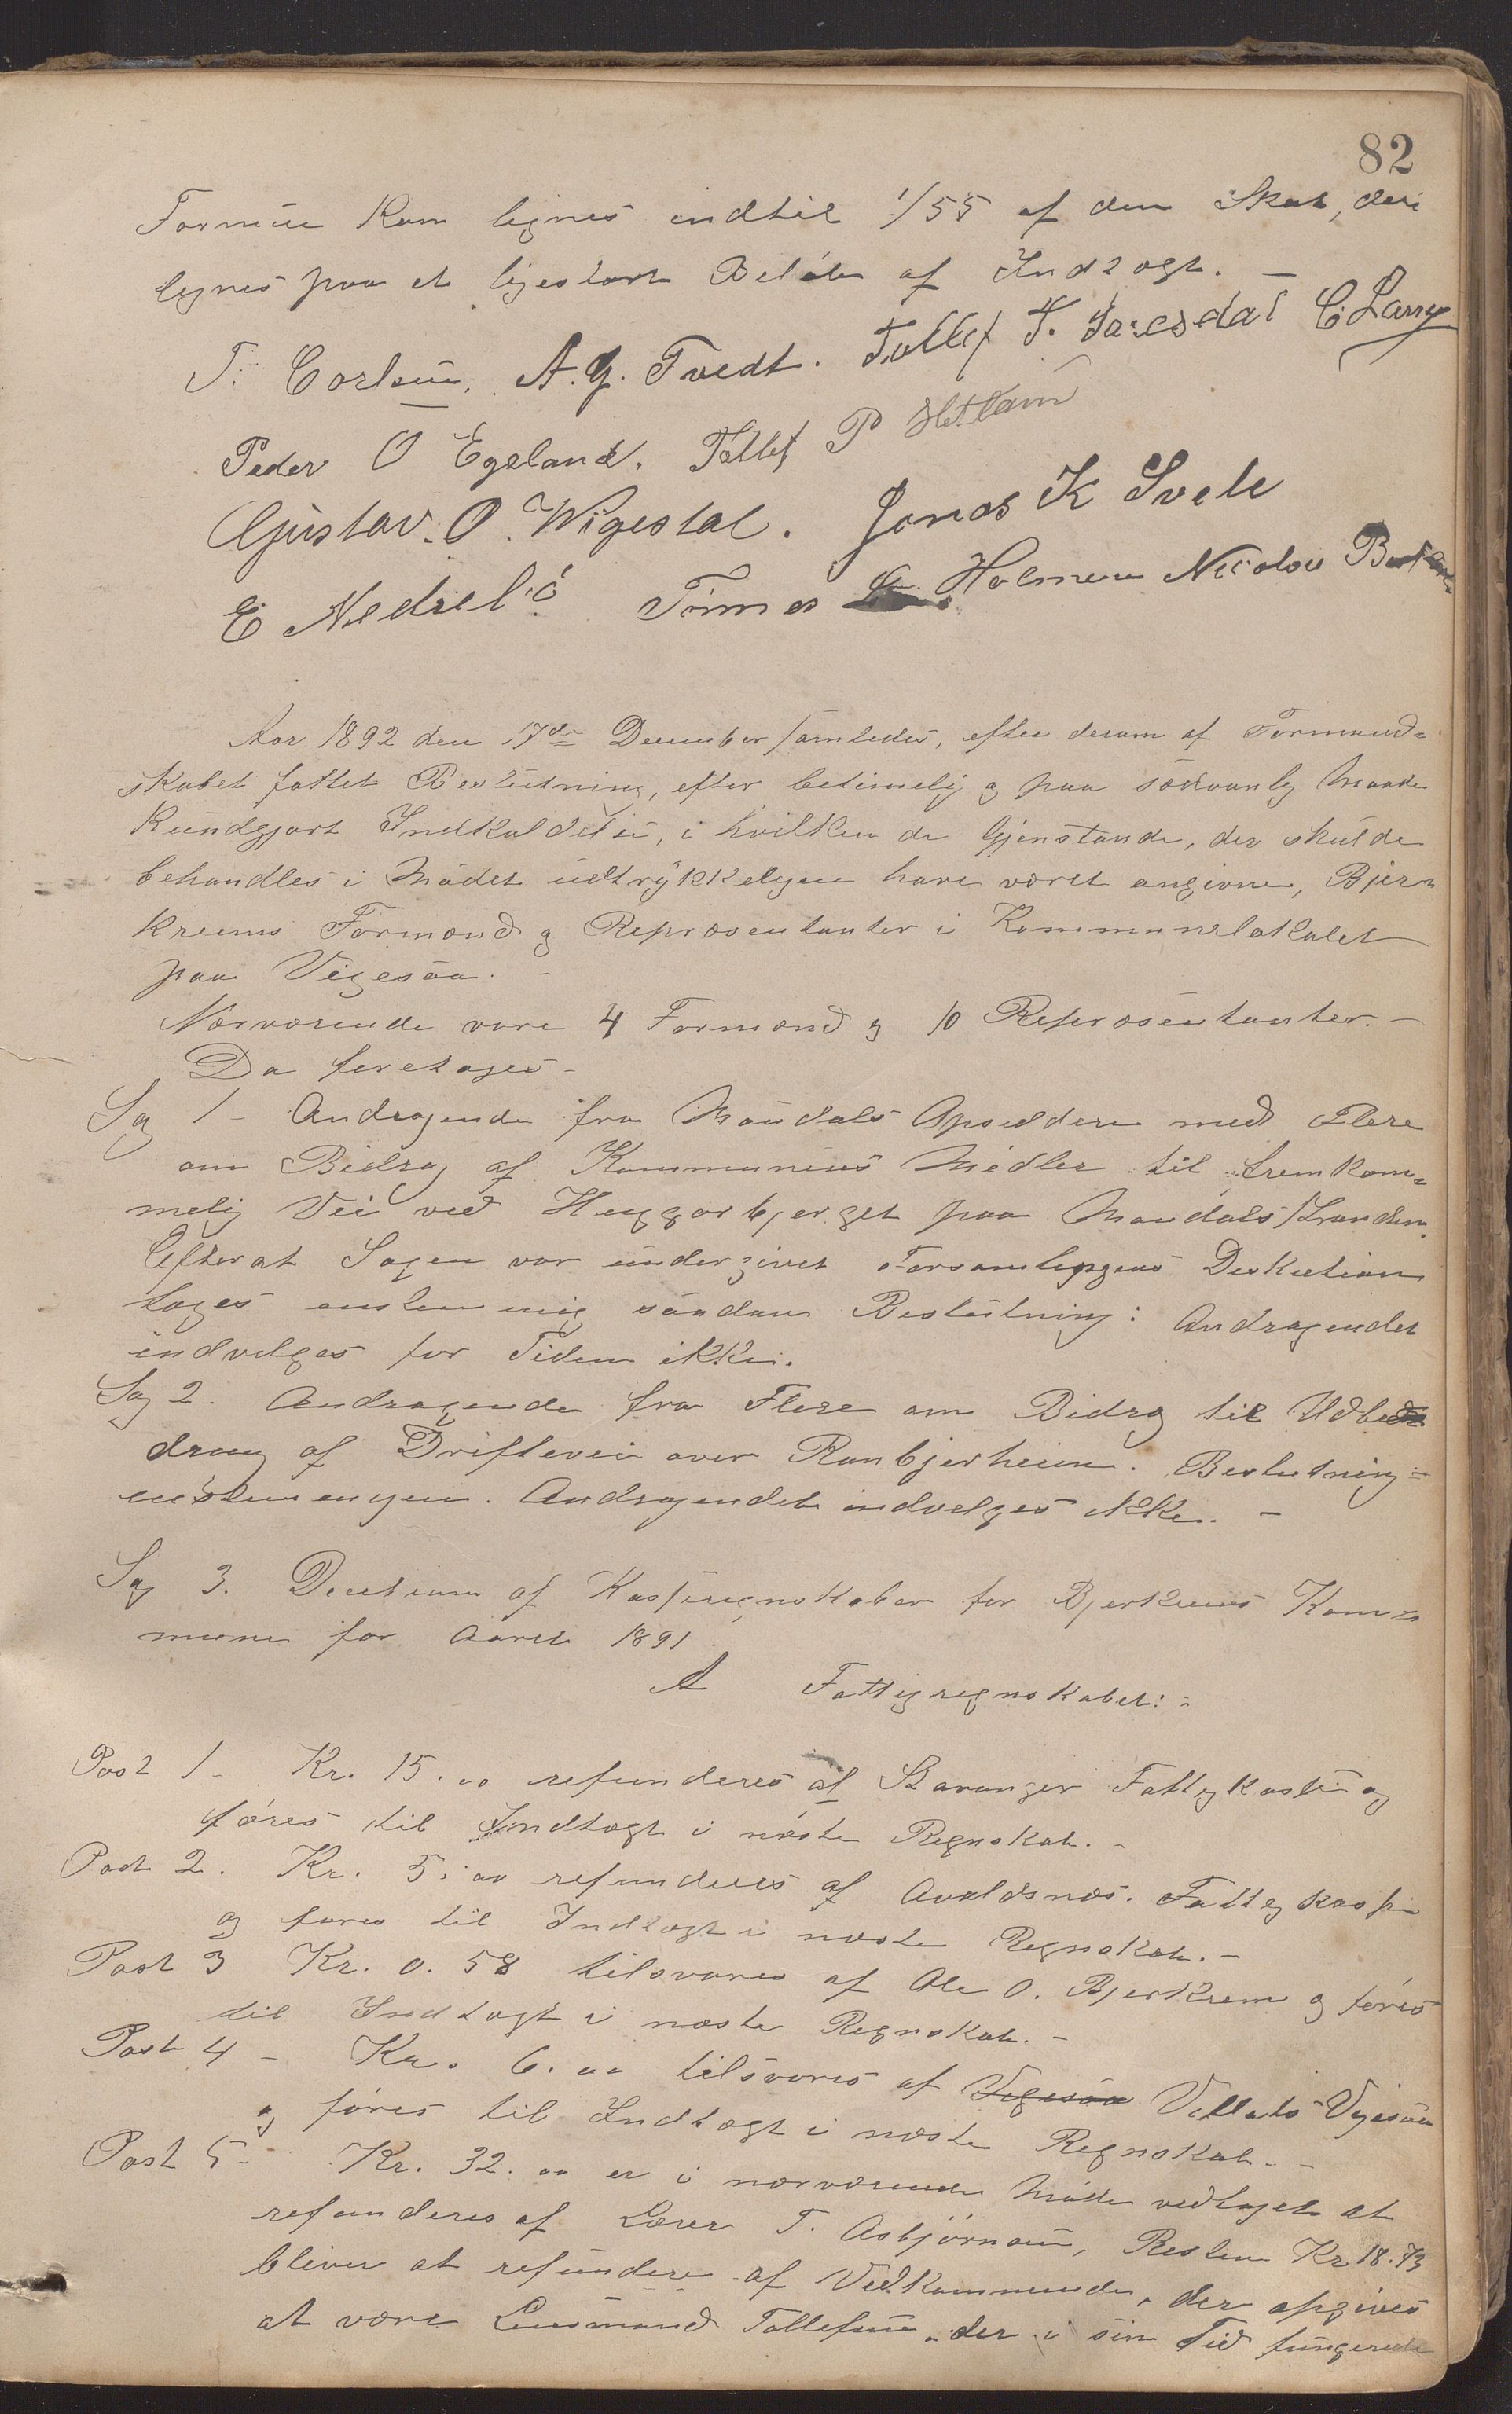 82
Formue kan lignes indtil 1/55 af den Skat, der
lignes paa et ligestort Beløb af Indtægt. –
T. Corlsen. A. G. Tvedt. Tollef T. C. Larsen
Peder O Egeland. Tollef P Hetland
Gustav. O. Wigestal. Jonas K Svele
E Nedrebø Tønnes Holmen Nicolai
Aar 1892 den 17de December samledes, efter derom af Formand-
skabet fattet Beslutning, efter betimelig og paa sædvanlig Maade
Kundgjort Indkaldelse, i hvilken de Gjenstande, der skulde
behandles i Mødet udtrykkeligen have været angivne, Bjer-
kreims Formænd og Repræsentanter i Kommunelokalet
paa Vigesaa. –
Nærværende vare 4 Formænd og 10 Repræsentanter. –
Da foretoges –
Sag 1 – Andragende fra Maudals Opsiddere med Flere
om Bidrag af Kommunens Midler til fremkom-
melig Vei ved Huggorbjerget paa Maudals Stranden.
Efterat Sagen var undergivet Forsamlingens Diskution
toges enstemmig saadan Beslutning: Andragendet
indvilges for Tiden ikke.
Sag 2. Andragende fra Flere om Bidrag til Udbed
dring af Driftevei over Runbjerheien. Beslutning:
enstemmigen. Andragendet indvelges ikke. –
Sag 3. Decition af Kasseregnskaber for Bjerkreims Kom-
mune for Aaret 1891.
A Fattigregnskabet: –
Post 1 – Kr. 15.00 refunderes af Stavanger Fattigkasse og
føres til Indtægt i næste Regnskab. –
Post 2. Kr. 5.00 refunderes af Avaldsnæs. Fattigkasse
og føres til Indtægt i næste Regnskab. –
Post 3 Kr. 0.58 tilsvares af Ole O. Bjerkrem og føres
til Indtægt i næste Regnskab. –
Post 4 – Kr. 6.00 tilsvares af Vigesaa Vigesaa
og føres til Indtægt i næste Regnskab. –
Post 5 – Kr. 32.00 er i nærværende Møde vedtaget at
refunderes af Lærer T. Asbjørnsen, Resten Kr. 18.73
bliver at refundere af Vedkommende, der opgives
at være Lensmand Tollefsen, der i sin Tid fungerede